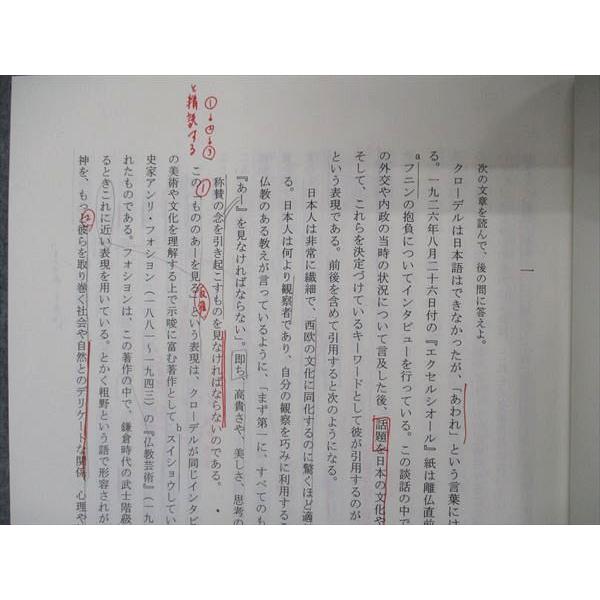 一
次の文章を読んで、後の問に答えよ。
クローデルは日本語はできなかったが、「あわれ」という言葉には
る。一九二六年八月二十六日付の『エクセルシオール』紙は離仏直前
a
フニンの抱負についてインタビューを行っている。この談話の中で
の外交や内政の当時の状況について言及した後、話題を日本の文化や
そして、これらを決定づけているキーワードとして彼が引用するのが
という表現である。前後を含めて引用すると次のようになる。
日本人は非常に繊細で、西欧の文化に同化するのに驚くほど適
る。日本人は何より観察者であり、自分の観察を巧みに利用するこ
仏教のある教えが言っているように、「まず第一に、すべてのも
『あー』を見なければならない」。即ち、高貴さや、美しさ、思考の
称賛の念を引き起こすものを見なければならないのである。
この「もののあーを見る」という表現は、クローデルが同じインタビ
の美術や文化を理解する上で示唆に富む著作としてスイショウしてい
b
史家アンリ・フォション（一八八一～一九四三）の『仏教芸術』（一九
れたものである。フォションは、この著作の中で、鎌倉時代の武士階級
るときこれに近い表現を用いている。とかく粗野という語で形容されが
神を、もつ彼らを取り巻く社会や自然とのデリケートな関係、心理や
①↓④↓③
①